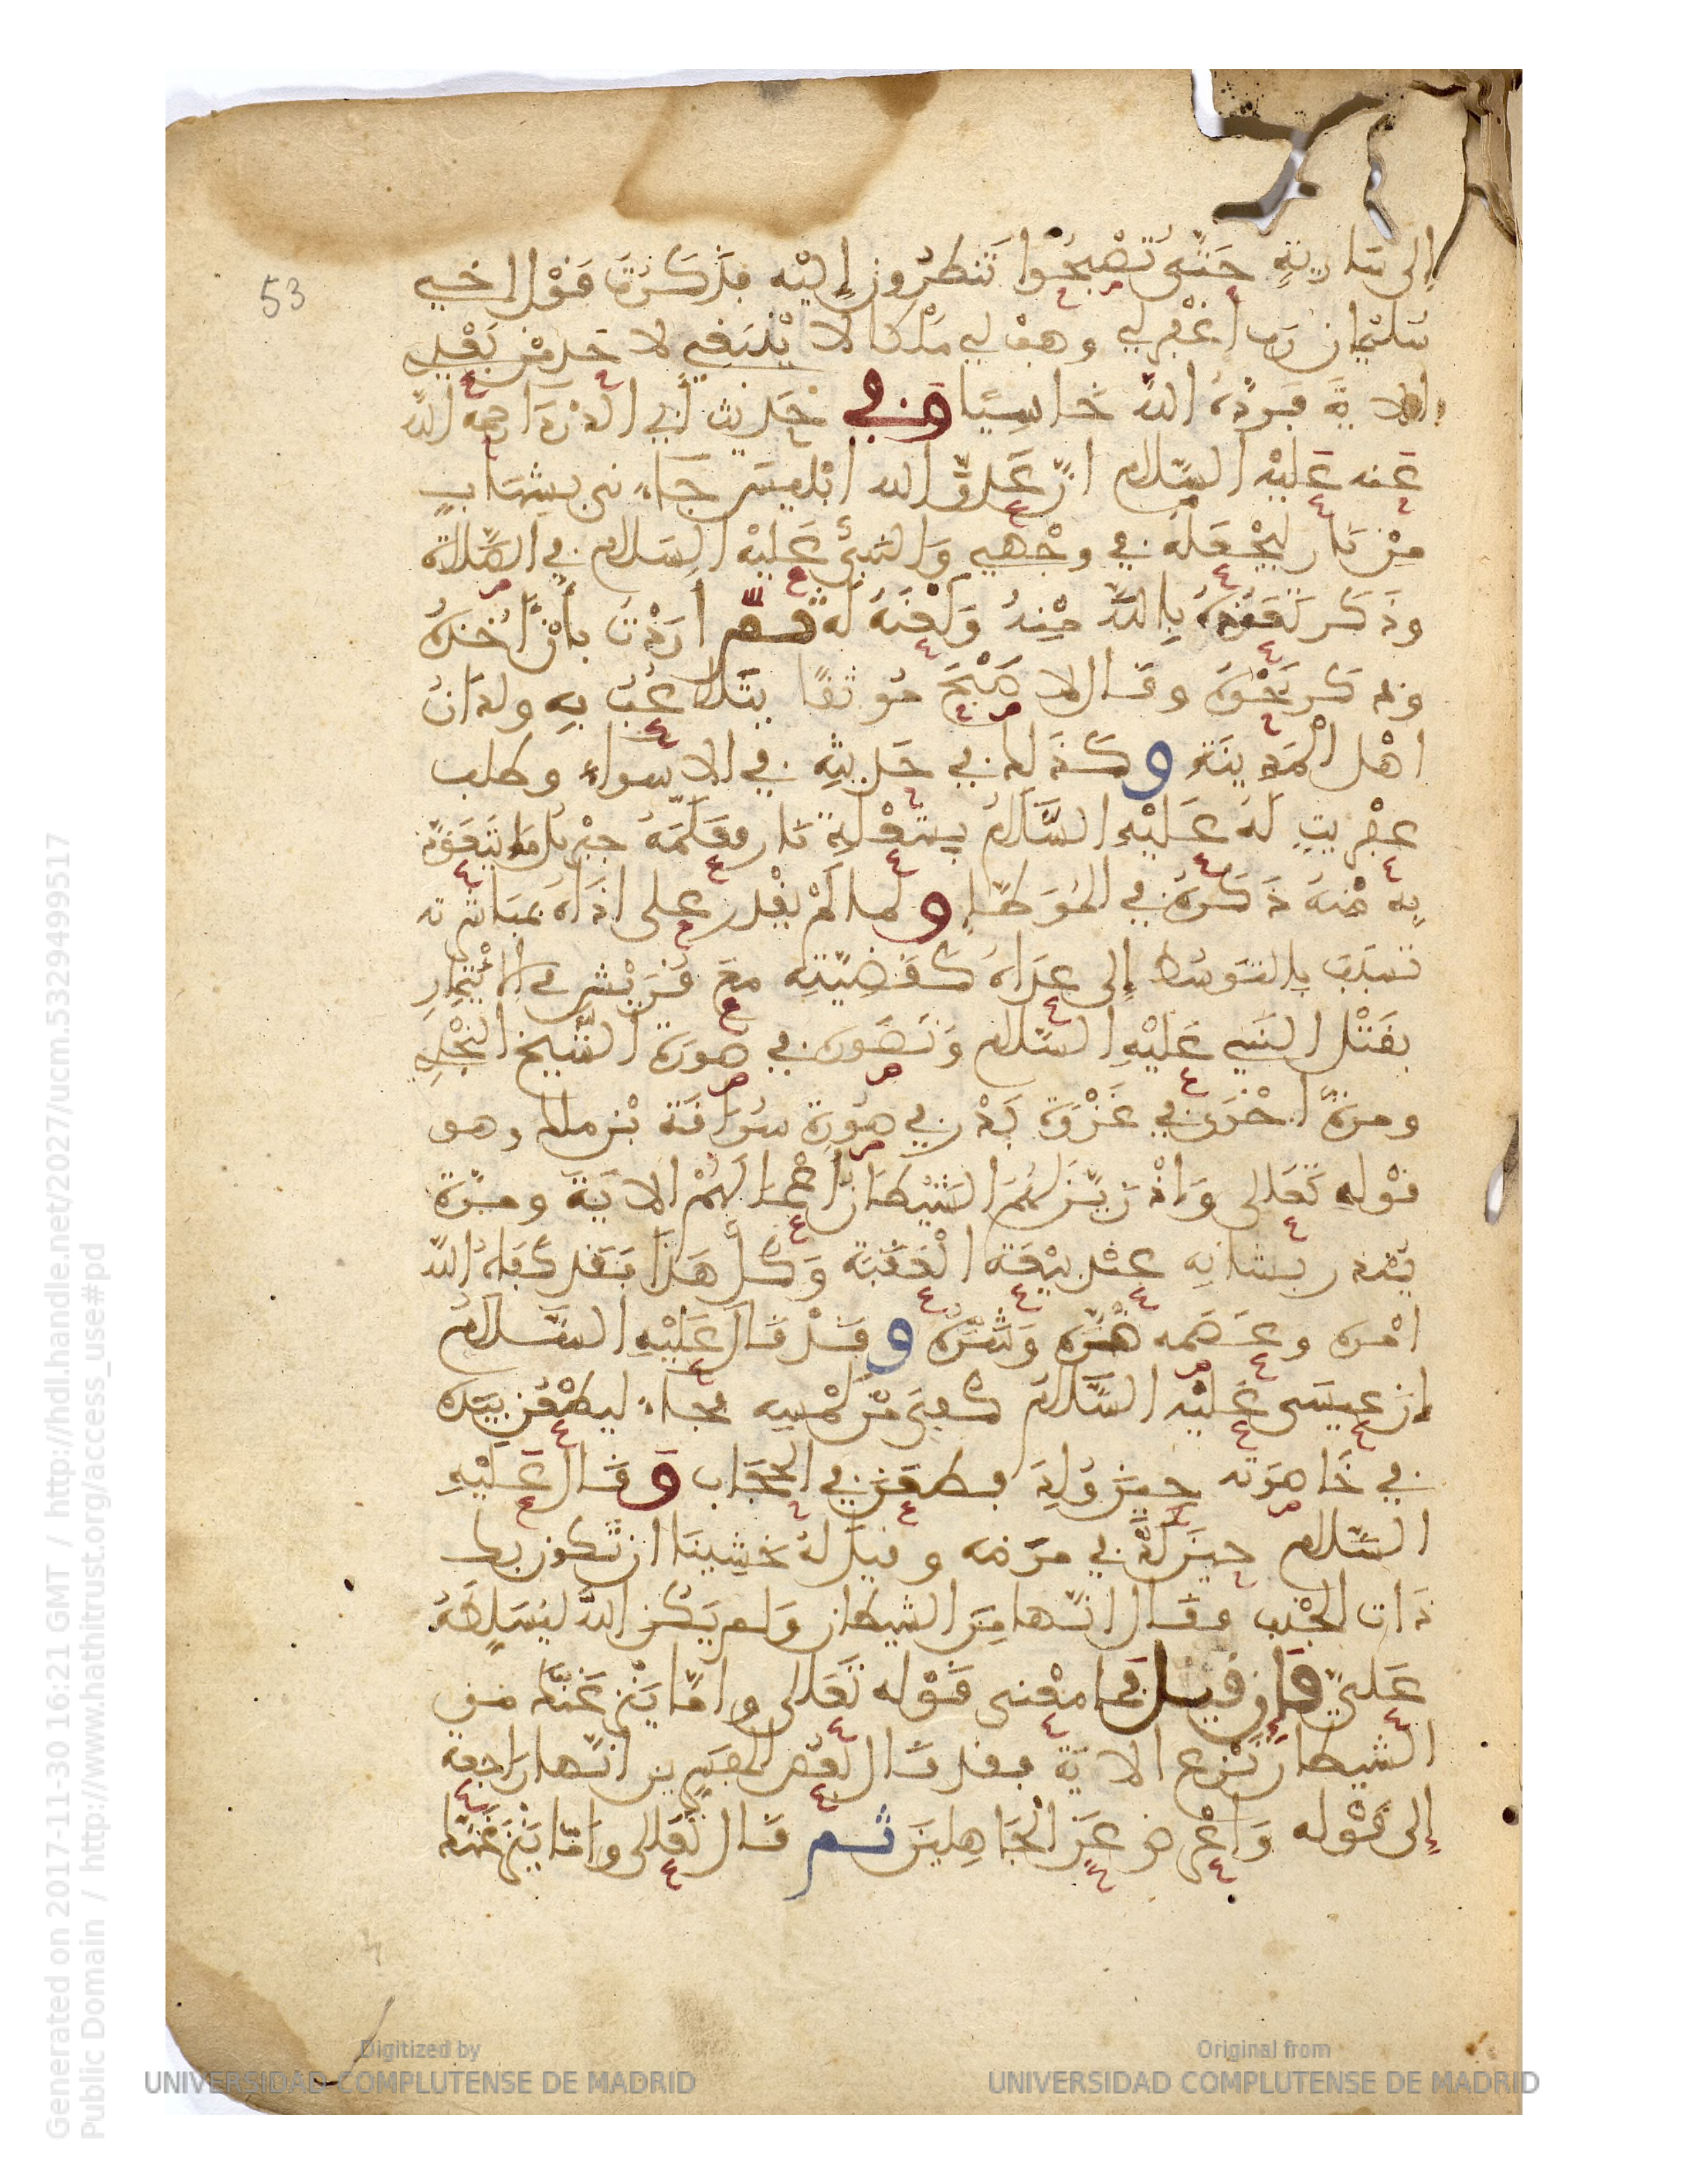 إلى سارية حتى تصبحوا تنظرون إليه فذكرت قول اخي
سليمان رب اغفر لي وهب لي ملكا لا ينبغي لاحد من بعدي
الاية فرده الله خاسيا وفي حديث أبي الدرداء رحمه الله
عنه عليه السلام ان عدو الله ابليس جاءني بشهاب
من نار ليجعله في وجهي والنبي عليه السلام في الصلاة
وذكر تعوذه بالله منه ولعنه له ثم أردت بأن أخذه
وذكر نحوه وقال لاصبح موثقا يتلاعب به ولدان
اهل المدينة وكذلك في حديثه في الاسراء وطلب
عفريت له عليه السلام بشعلة نار فعلمه جبريل ما يتعوذ
به منه ذكره في الموطإ ولما لم يقدر على اذاه بمباشرته
تسبب بالتوسط إلى عداه كقضيته مع قريش في الايتمار
بقتل النبي عليه السلام وتصوره في صورة الشيخ النجدي
ومرة اخرى في غزوة بدر في صورة سراقة بن مالك وهو
قوله تعالى واذ زين لهم الشيطان اعمالهم الاية ومرة
ينذر بشانه عند بيعة العقبة وكل هذا فقد كفاه الله
امره وعصمه ضره وشره وقد قال عليه السلام
ان عيسى عليه السلام كفي من لمسه فجاء ليطعن بيده
في خاصرته حين ولد فطعن في الحجاب وقال عليه
السلام حين لد في مرضه وقيل له خشينا ان تكون بك
ذات الجنب فقال انها من الشيطان ولم يكن الله ليسلطه
علي فان قيل فما معنى قوله تعالى واما ينزغنك من
الشيطان نزغ الاية فقد قال بعض المفسرين انها راجعة
إلى قوله واعرض عن الجاهلين ثم قال تعالى واما ينزغنك
53
Generated on 2017-11-30 16:21 GMT / http://hdl.handle.net/2027/ucm.5329499517
Public Domain / http://www.hathitrust.org/access_use#pd
Digitized by
UNIVERSIDAD COMPLUTENSE DE MADRID
Original from
UNIVERSIDAD COMPLUTENSE DE MADRID